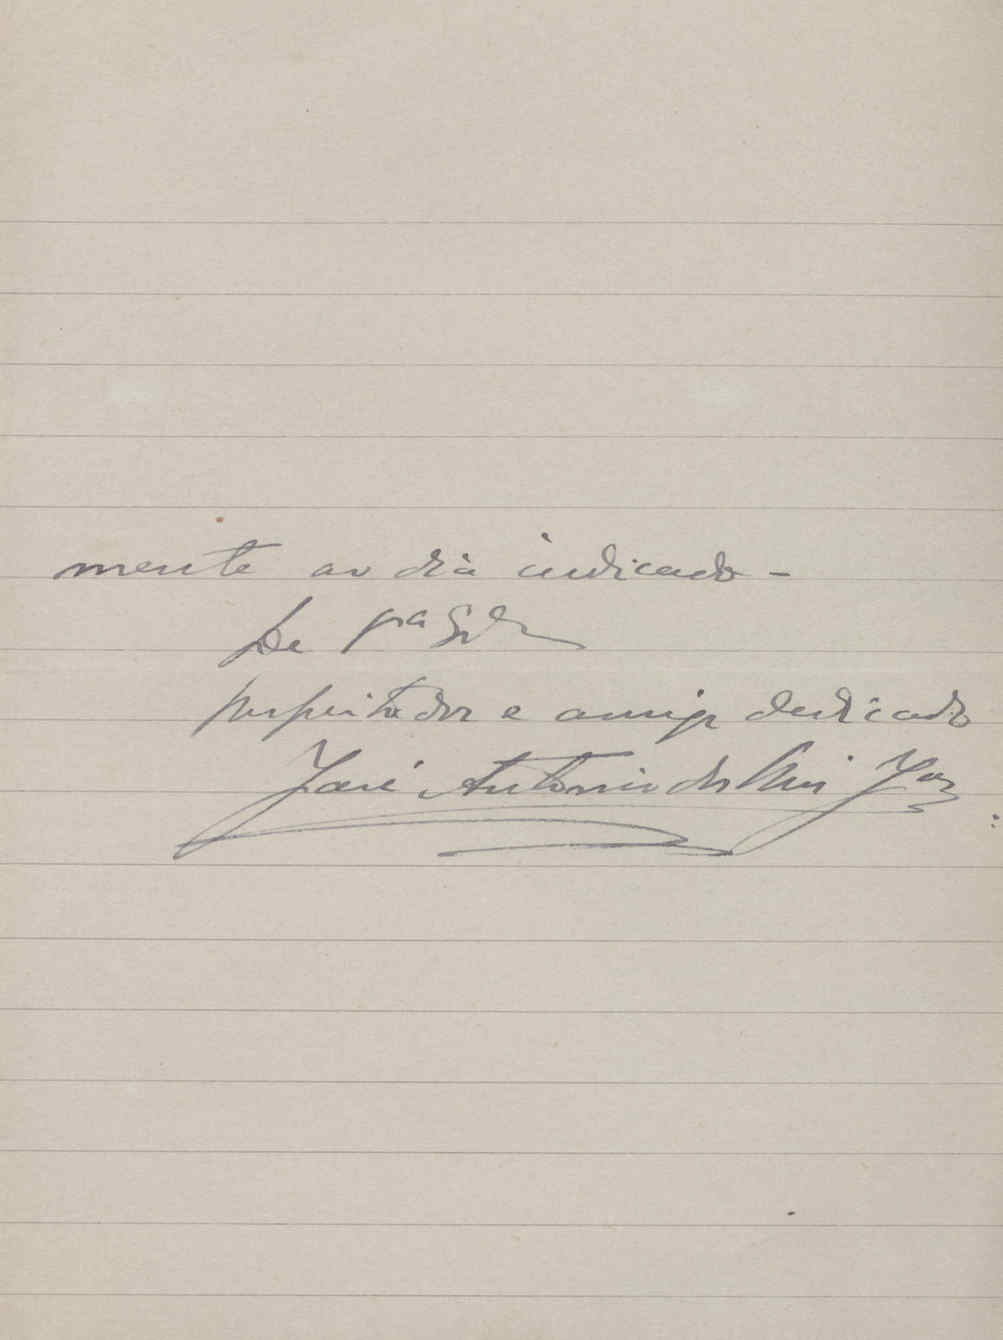 mente ao dia indicado -
De
respeitador e amigo dedicado
José Antonio dos Reis